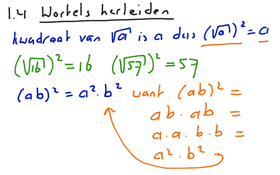 1.4 Wortels herleiden
kwadraat van √a is a dus (√a)² = a
(√16)² = 16 (√57)² = 57
(ab)² = a² · b² want (ab)² =
ab · ab =
a · a · b · b =
a² · b²